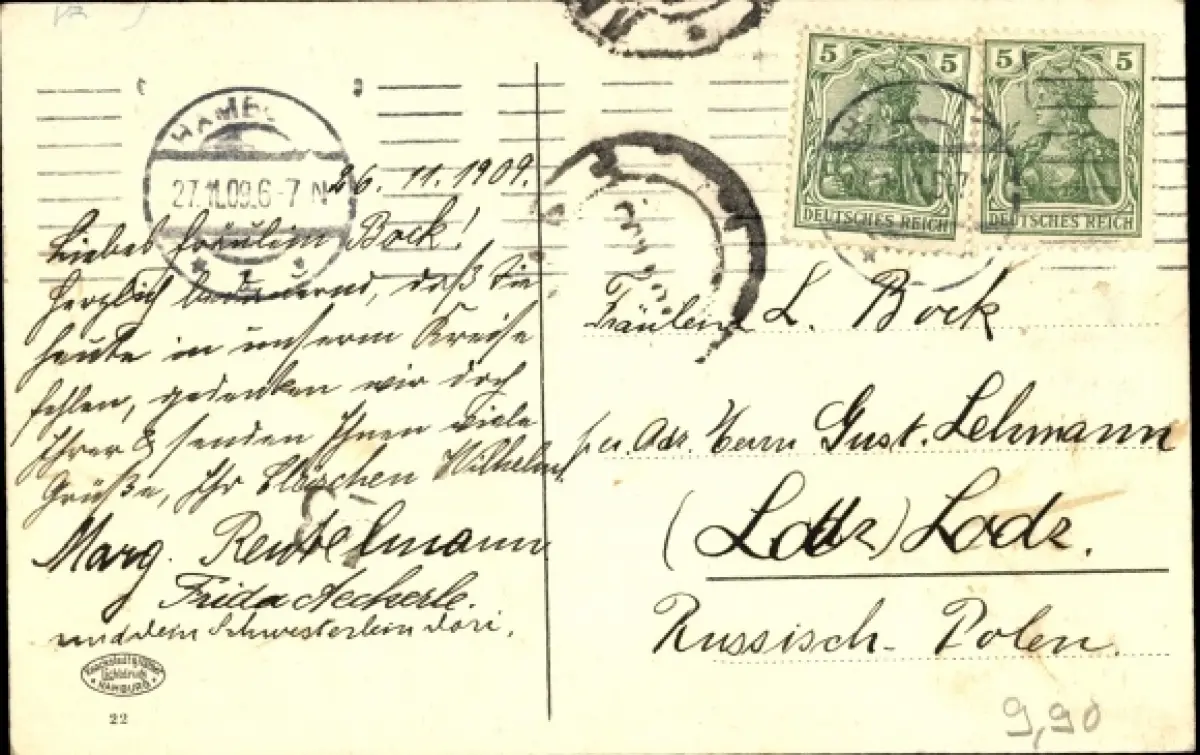 5 5 5 5
DEUTSCHES REICH DEUTSCHES REICH
HAMB
27.11.09.6-7N
26. 11. 1909.
Liebes Fräulein Bock!
Herzlich bedauernd, daß Sie
heute in unserm Kreise
fehlen, gedenken wir doch
Ihrer & senden Ihnen viele
Grüße, Ihr Clärchen Wilhelm
Marg.
Frida Aeckerle.
und dein Schwesterlein Dori.
HAMBURG
22
Fräulein L. Bock
per Adr. Herrn Gust. Lehmann
Lodz.
Russisch-Polen.
9,90